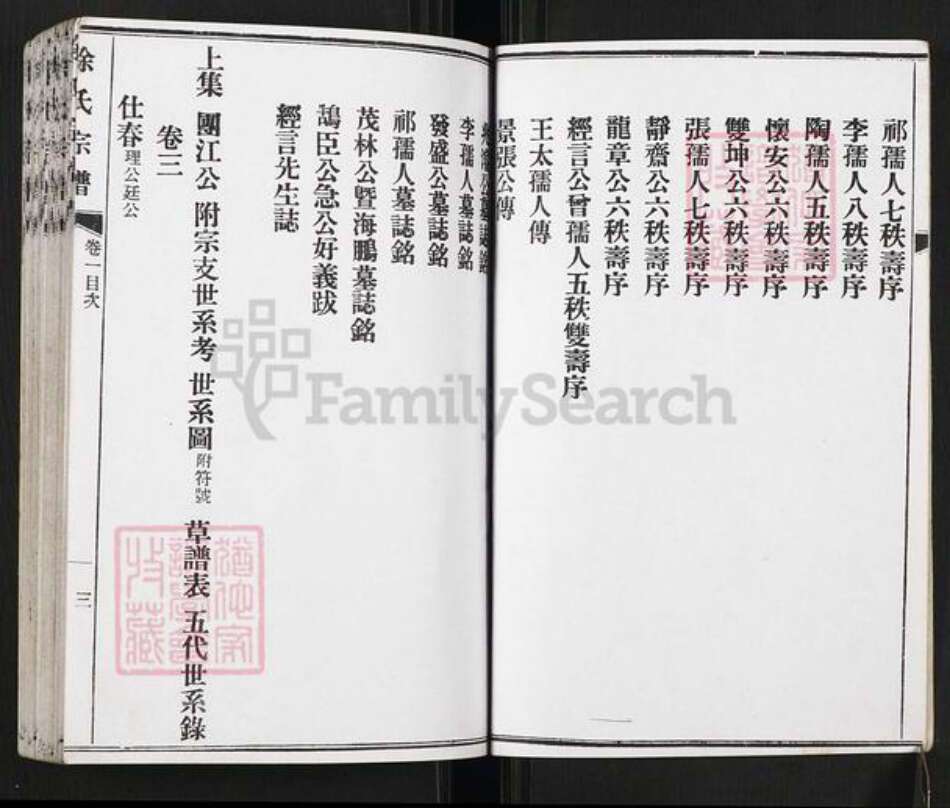 祁孺人七秩壽序
李孺人八秩壽序
陶孺人五秩壽序
懷安公六秩壽序
雙坤公六秩壽序
張孺人七秩壽序
靜齋公六秩壽序
龍章公六秩壽序
經言公曾孺人五秩雙壽序
王太孺人傳
景張公傳
公墓誌銘
李孺人墓誌銘
發盛公墓誌銘
祁孺人墓誌銘
茂林公暨海鵬墓誌銘
鵠臣公急公好義跋
經言先生誌
上集 團江公 附宗支世系考 世系圖附符號 草譜表 五代世系錄
卷三
仕春理公廷公
徐氏宗譜 卷一目次 三
FamilySearch